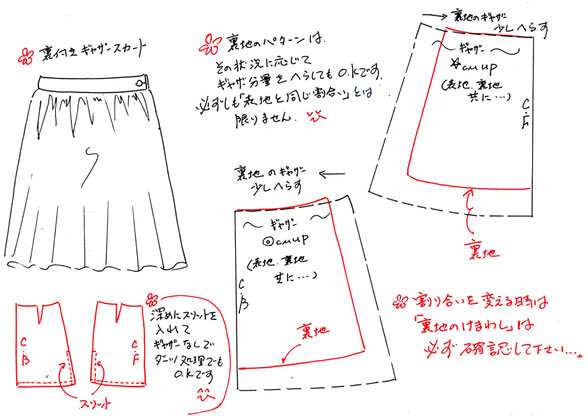 裏付きギャザースカート
裏地のパターンは、
その状況に応じて
ギャザー分量をへらしても O.Kです。
必ずしも「表地と同じ割合い」とは
限りません。
裏地のギャザー
少しへらす
ギャザー
☆cm up
(表地、裏地
共に…)
C
F
裏地
裏地のギャザー
少しへらす
ギャザー
◎cm up
(表地、裏地
共に…)
C
B
裏地
C
B
C
F
スリット
深めにスリットを
入れて
ギャザーなしで
ダーツ処理でも
O.Kです
割り合いを変える時は
「裏地のけまわし」は
必ず確認して下さい…。